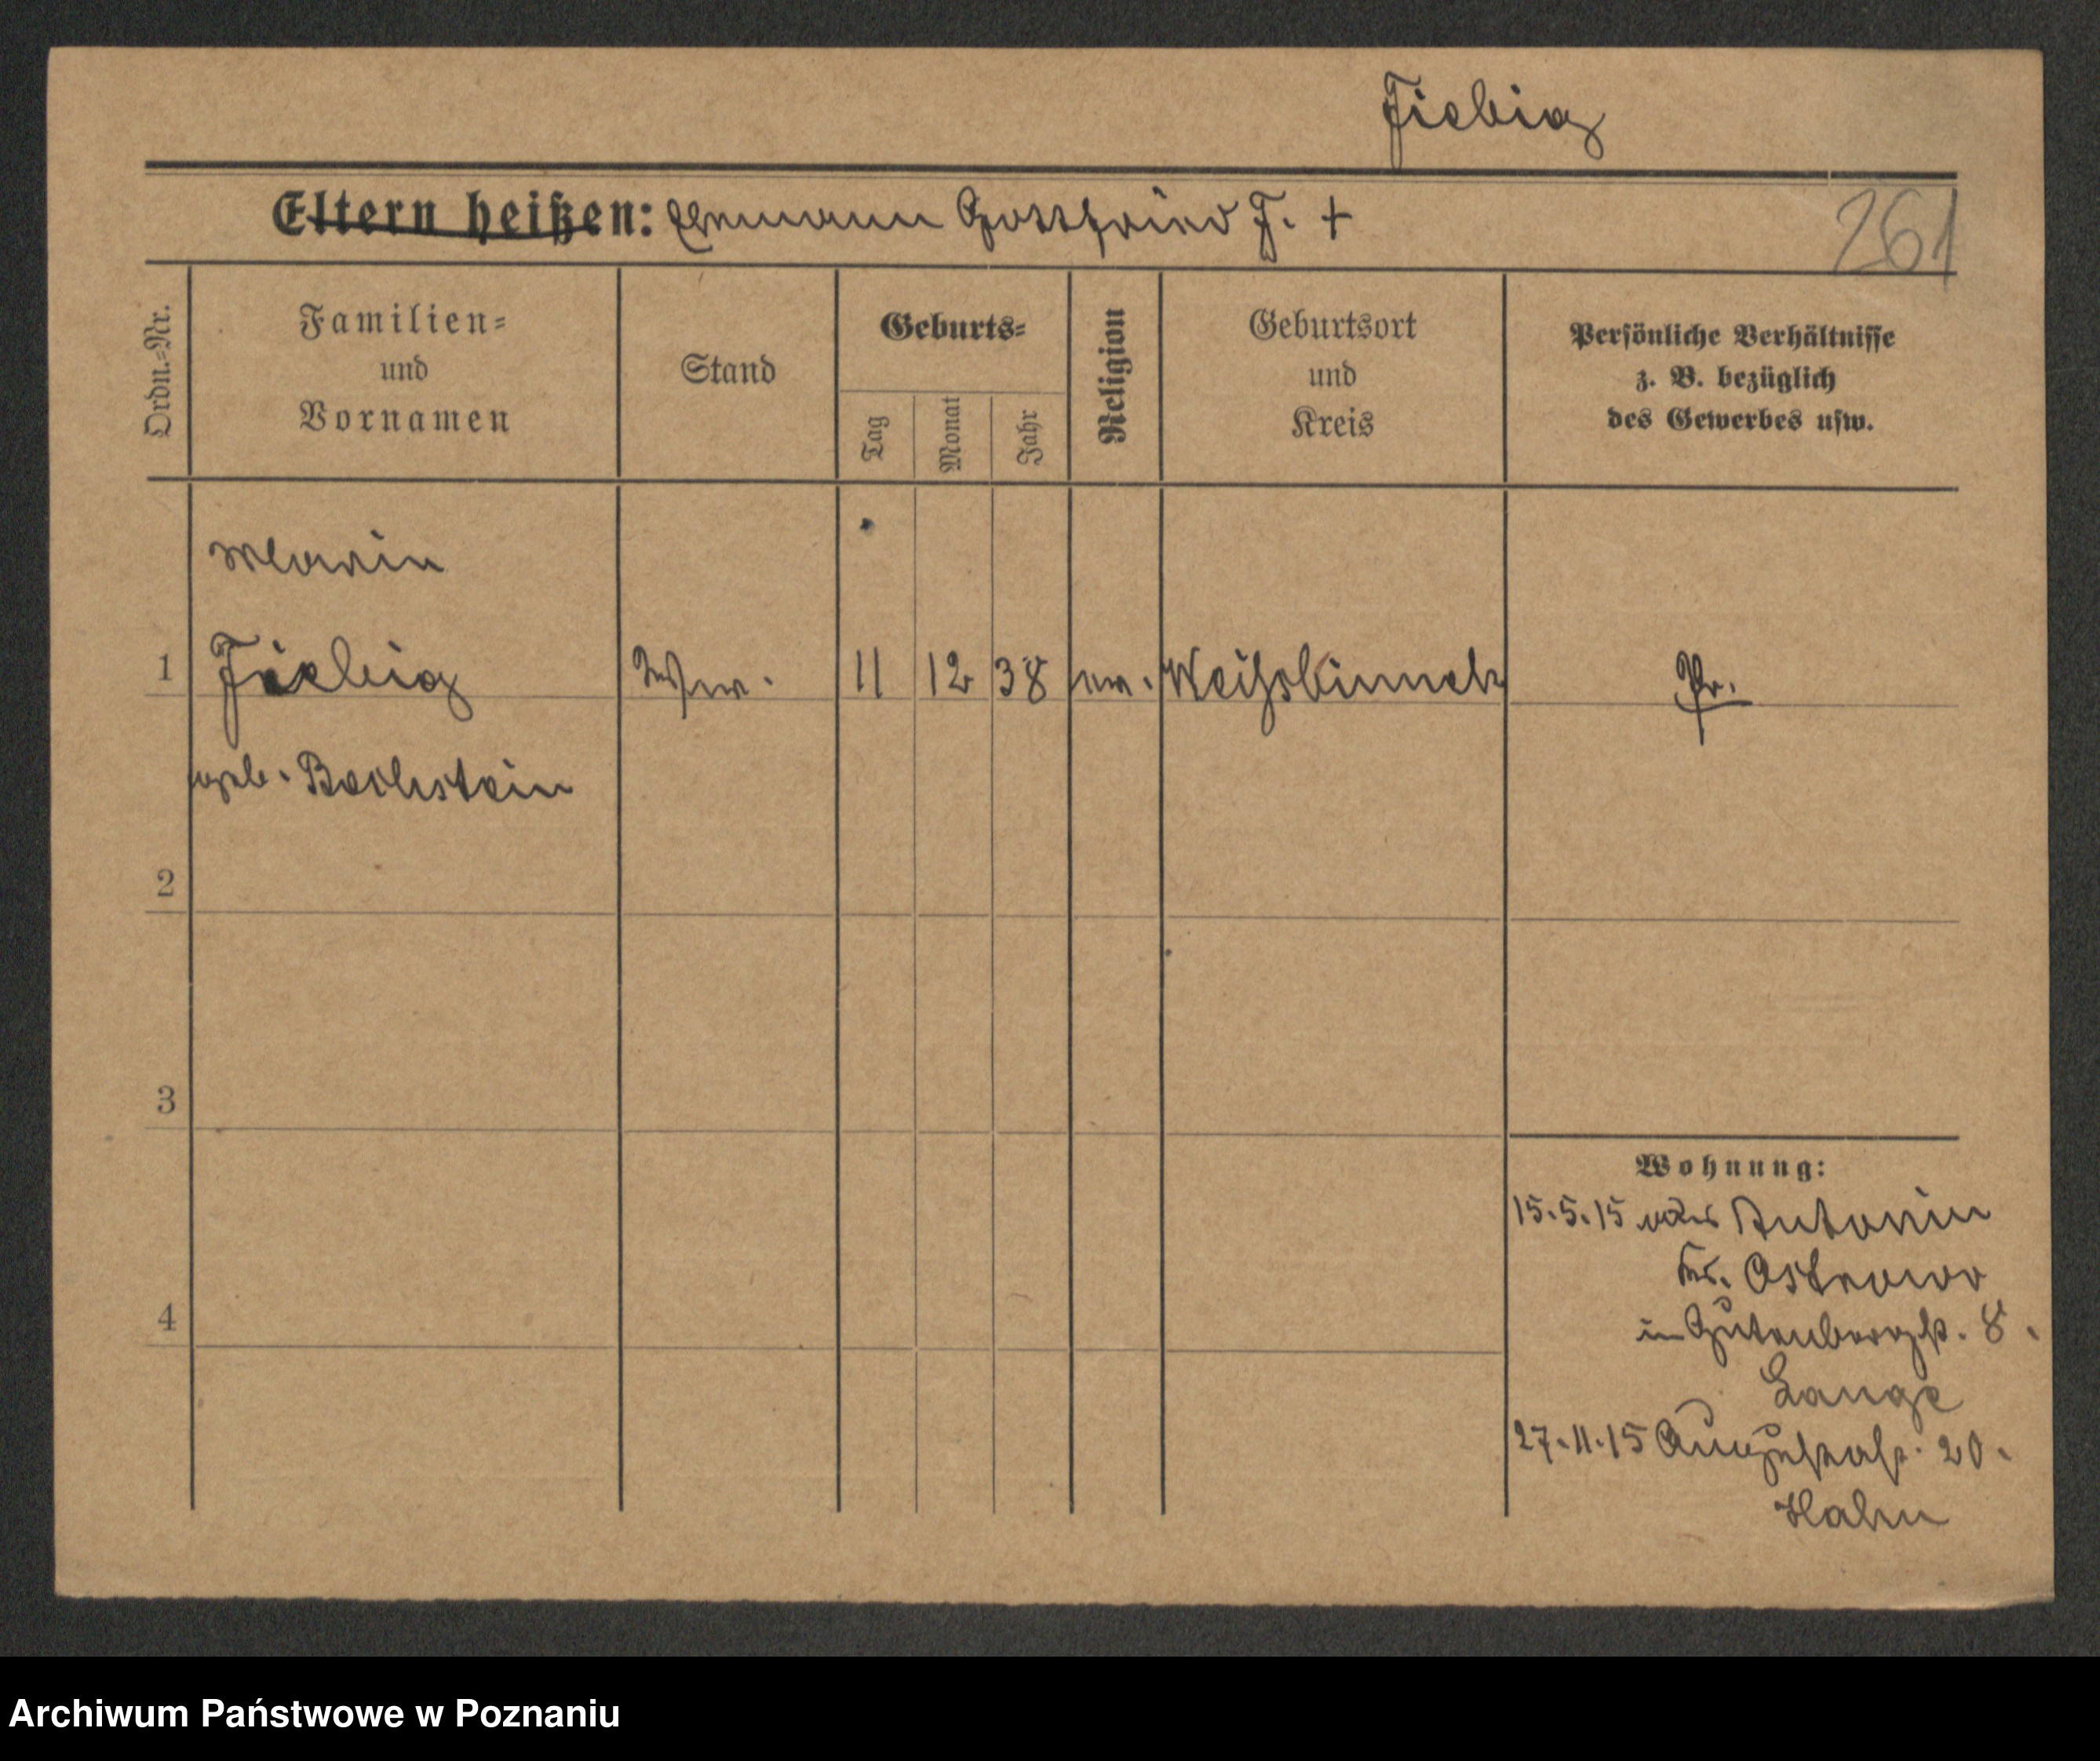 Fiebig
Eltern heißen: Ehemann Gottfried F. +
261
Ordn.-Nr.
Familien-
und
Vornamen
Stand
Geburts-
Tag
Monat
Jahr
Religion
Geburtsort
und
Kreis
Persönliche Verhältnisse
z. B. bezüglich
des Gewerbes usw.
Marie
1 Fiebig Wwe. 11 12 38 ev. Pr.
geb. Bachstein
2
3
4
Wohnung:
15.5.15 aus Antonin
Krs. Ostrowo
in Gutenbergstr. 8.
Lange
27.11.15 Augustastr. 20.
Hahn
Archiwum Państwowe w Poznaniu